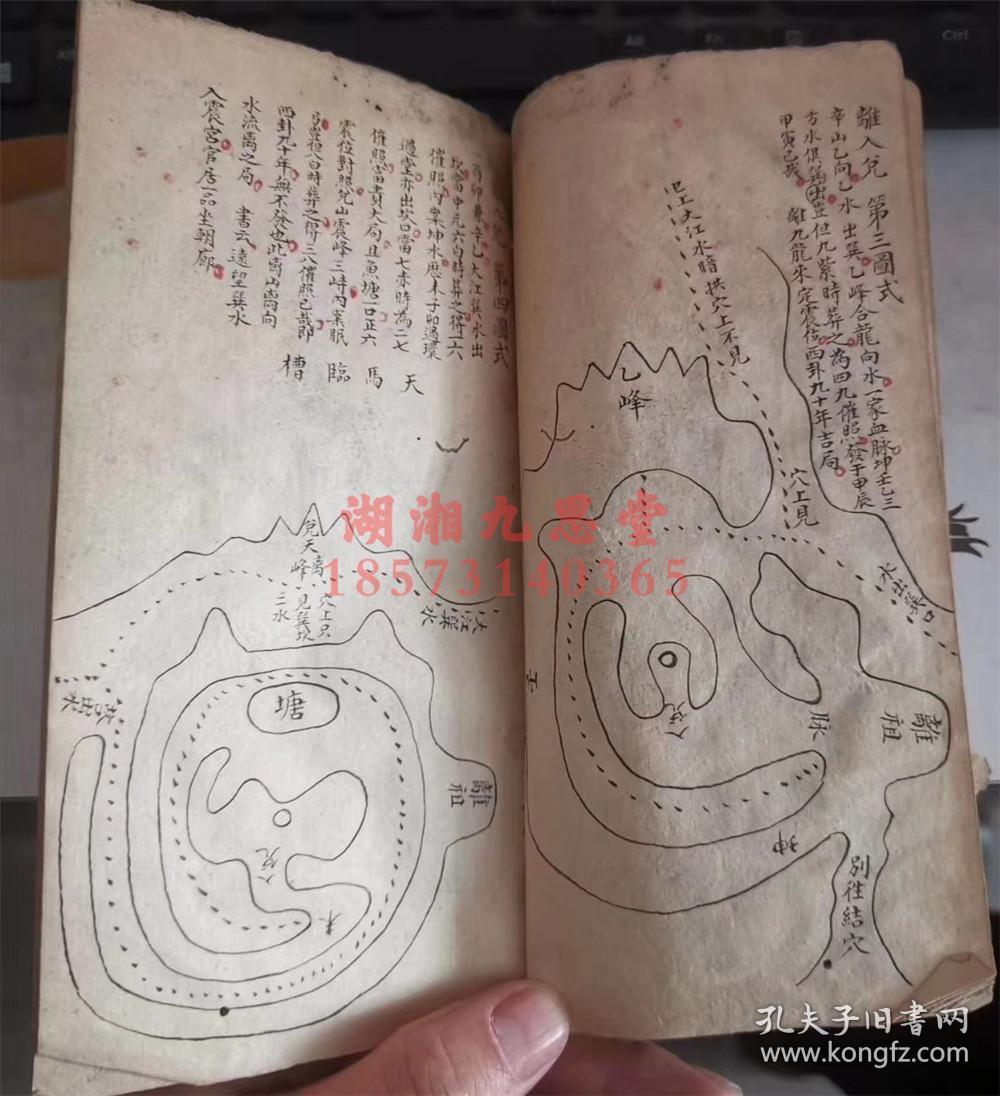 離入兌 第三圖式
辛山乙向乙水出巽乙峰合龍向水一家血脉坤壬乙三
方水俱為出豈但九紫時葬之為四九催照發于甲辰
甲寅已哉 離九龍來定震位西卦九十年吉局
巳上大江水暗拱穴上不見
穴上見
乙峰
水出巽口
離祖
脉
入兌
壬
坤
別徃結穴
第四圖式
酉卯兼辛乙大江巽水出
坎當中元六白時葬之得一六
催照內案坤水應未子卯過環
過堂亦出坎口當七赤時為二七
催照富貴大局且魚塘一口正六
震位對照兌山震峰三峙內案眠
弓豈但八白時葬之得三八催照已哉即
西卦九十年無不發也此离山离向
水流离之局 書云 遠望巽水
入震宮官居一品坐朝廊
天
馬
臨
槽
兌天峰
离
穴上只
見巽坎
三水
大江巽水
塘
離祖
入兌
未
湖湘九思堂
18573140365
孔夫子旧书网
www.kongfz.com
Alt
Ctrl